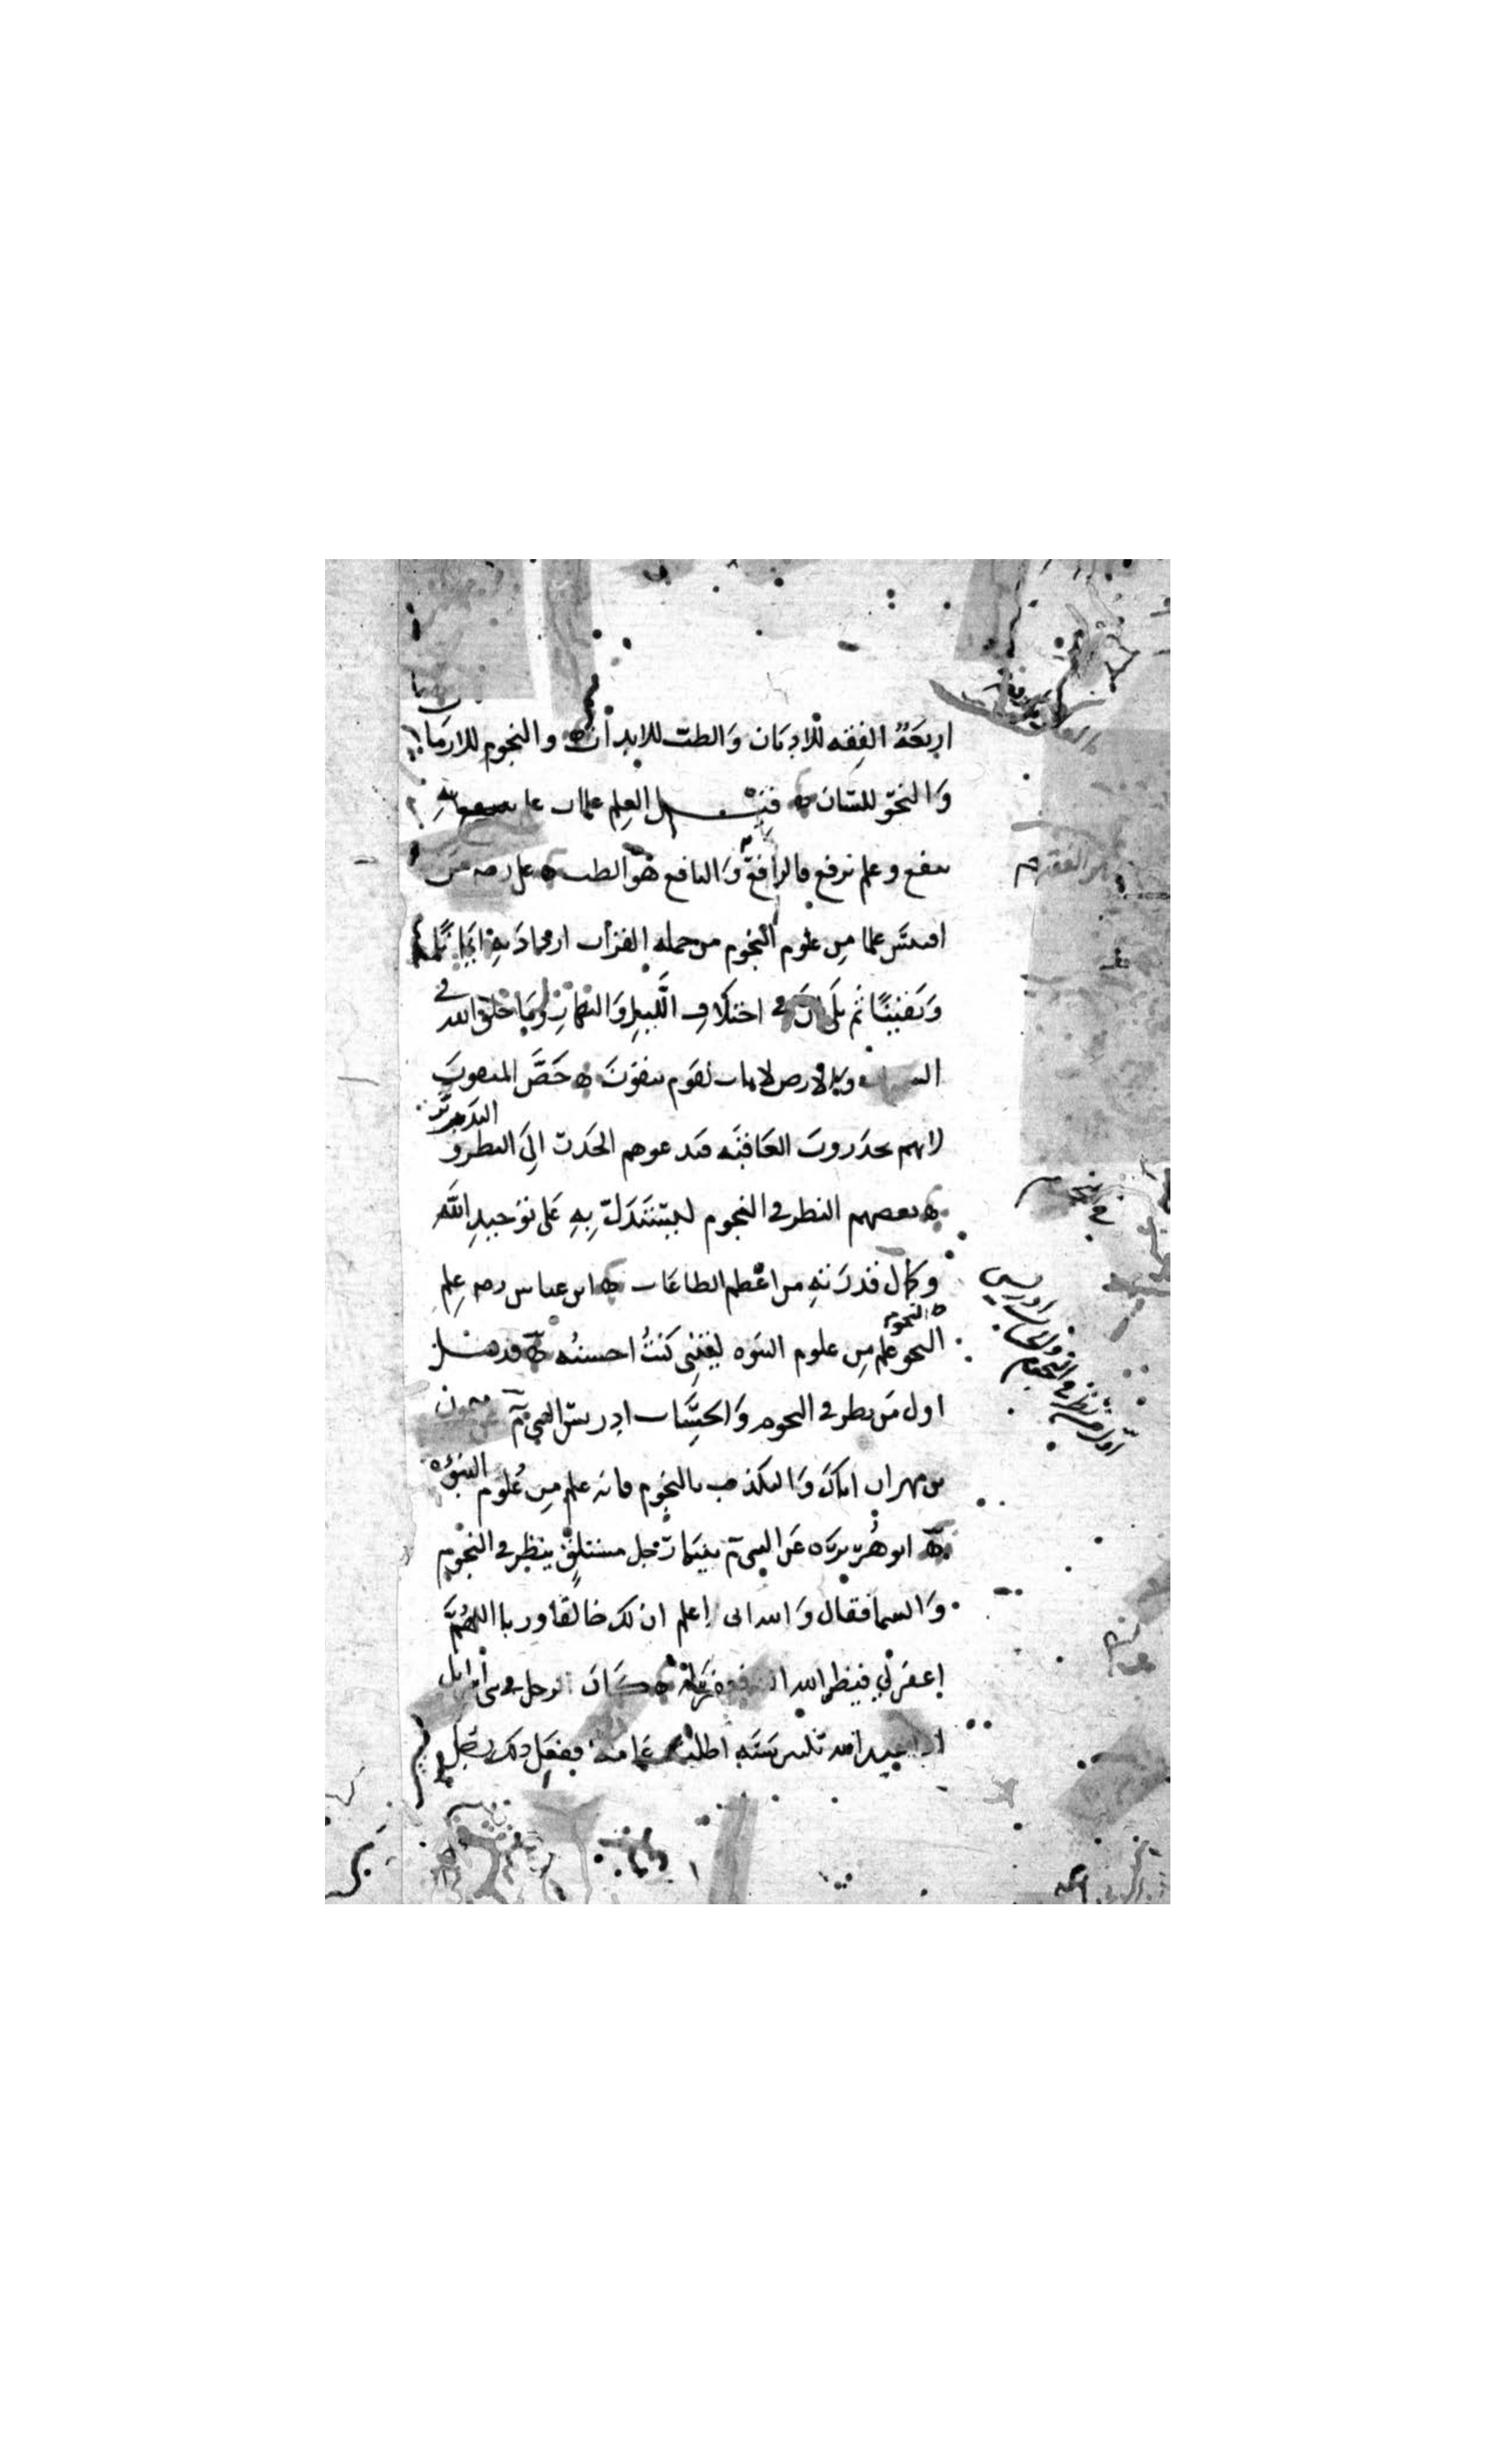 اربعة الفقه للاديان والطب للابدان والنجوم للازمان
والنحو للسان قيل العلم علمان علم
ينفع وعلم يرفع فالرافع والنافع هو الطب علي رضه من
اقتبس علما من علوم النجوم من حملة القرآن ازداد به ايمانا
ويقينا ثم تلى ان في اختلاف الليل والنهار وما خلق الله في
والارض لايات لقوم يتقون خص المتقون
لانهم يحذرون العاقبة فيدعوهم الحذر الى النظر و التدبر
بعضهم النظر في النجوم ليستدل به على توحيد الله
وكمال قدرته من اعظم الطاعات ابن عباس رضه علم
النجوم
النجوم علم من علوم النبوة ليتني كنت احسنه وقد قيل
اول من نظر في النجوم والحساب ادريس النبي عم ميمون
بن مهران اياك والتكذيب بالنجوم فانه علم من علوم النبوة
ابو هريرة عن النبي عم بينما رجل مستلق ينظر في النجوم
والسما فقال والله اني اعلم ان لك خالقا وربا اللهم
اغفر لي فينظر الله اليه فغفر له كان الرجل في بني اسرائيل
اذا عبد الله ثلثين سنة اظلته غمامة ففعل ذلك رجل
اول من نظر في النجوم والحساب ادريس